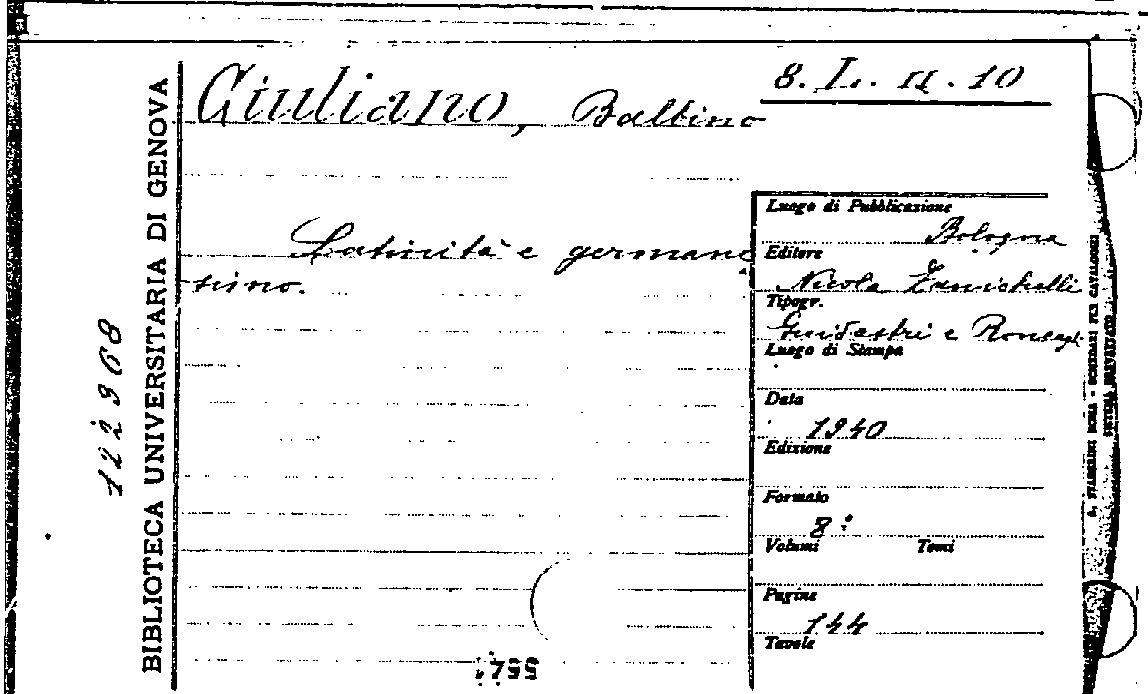 8. L. II. 10
Giuliano, Balbino
Latinità e germane
simo.
Luogo di Pubblicazione
Bologna
Editore
Nicola Zanichelli
Tipogr.
e Roncagl
Luogo di Stampa
Data
1940
Edizione
Formato
8°
Volumi Tomi
Pagine
144
Tavole
BIBLIOTECA UNIVERSITARIA DI GENOVA
122968
SCHEDARI PER CATALOGHI
SISTEMA BREVETTATO